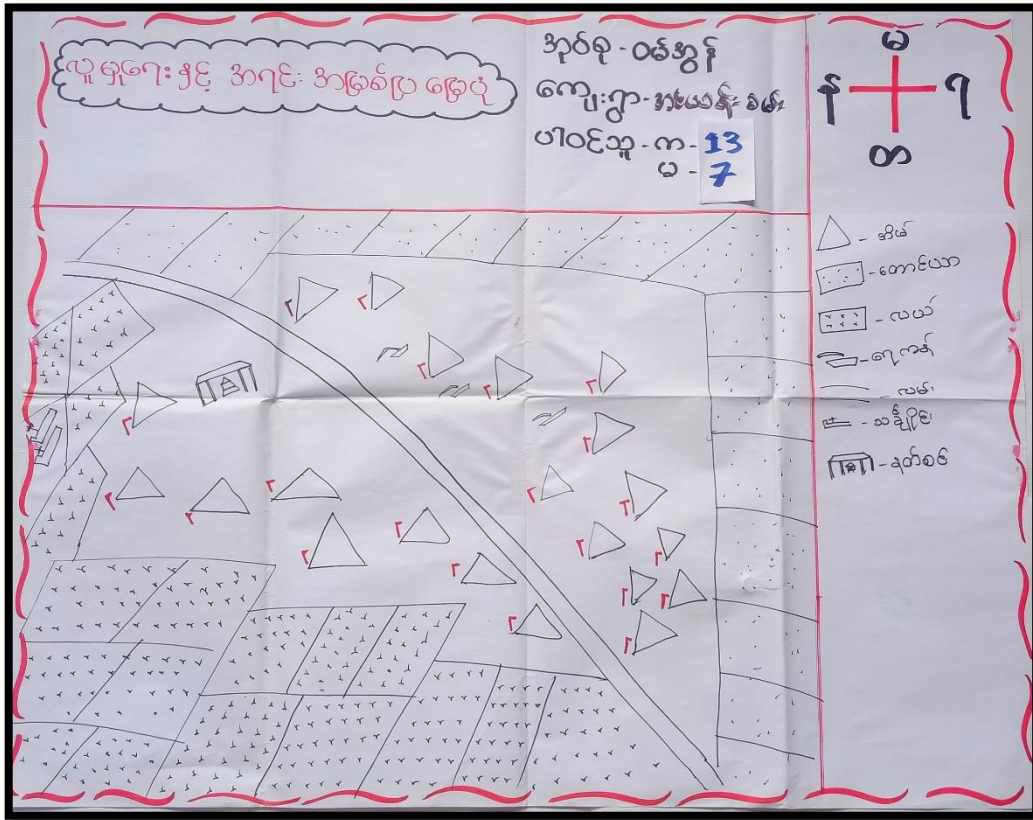 လူမှုရေးနှင့် အရင်းအမြစ်ပြ မြေပုံ
အုပ်စု - ဝမ်အွန်
ကျေးရွာ -
ပါဝင်သူ - က - 13
မ - 7
မ
န
ရ
တ
- အိမ်
- တောင်ယာ
- လယ်
- ရေကန်
- လမ်း
- သင်္ချိုင်း
- နတ်စင်